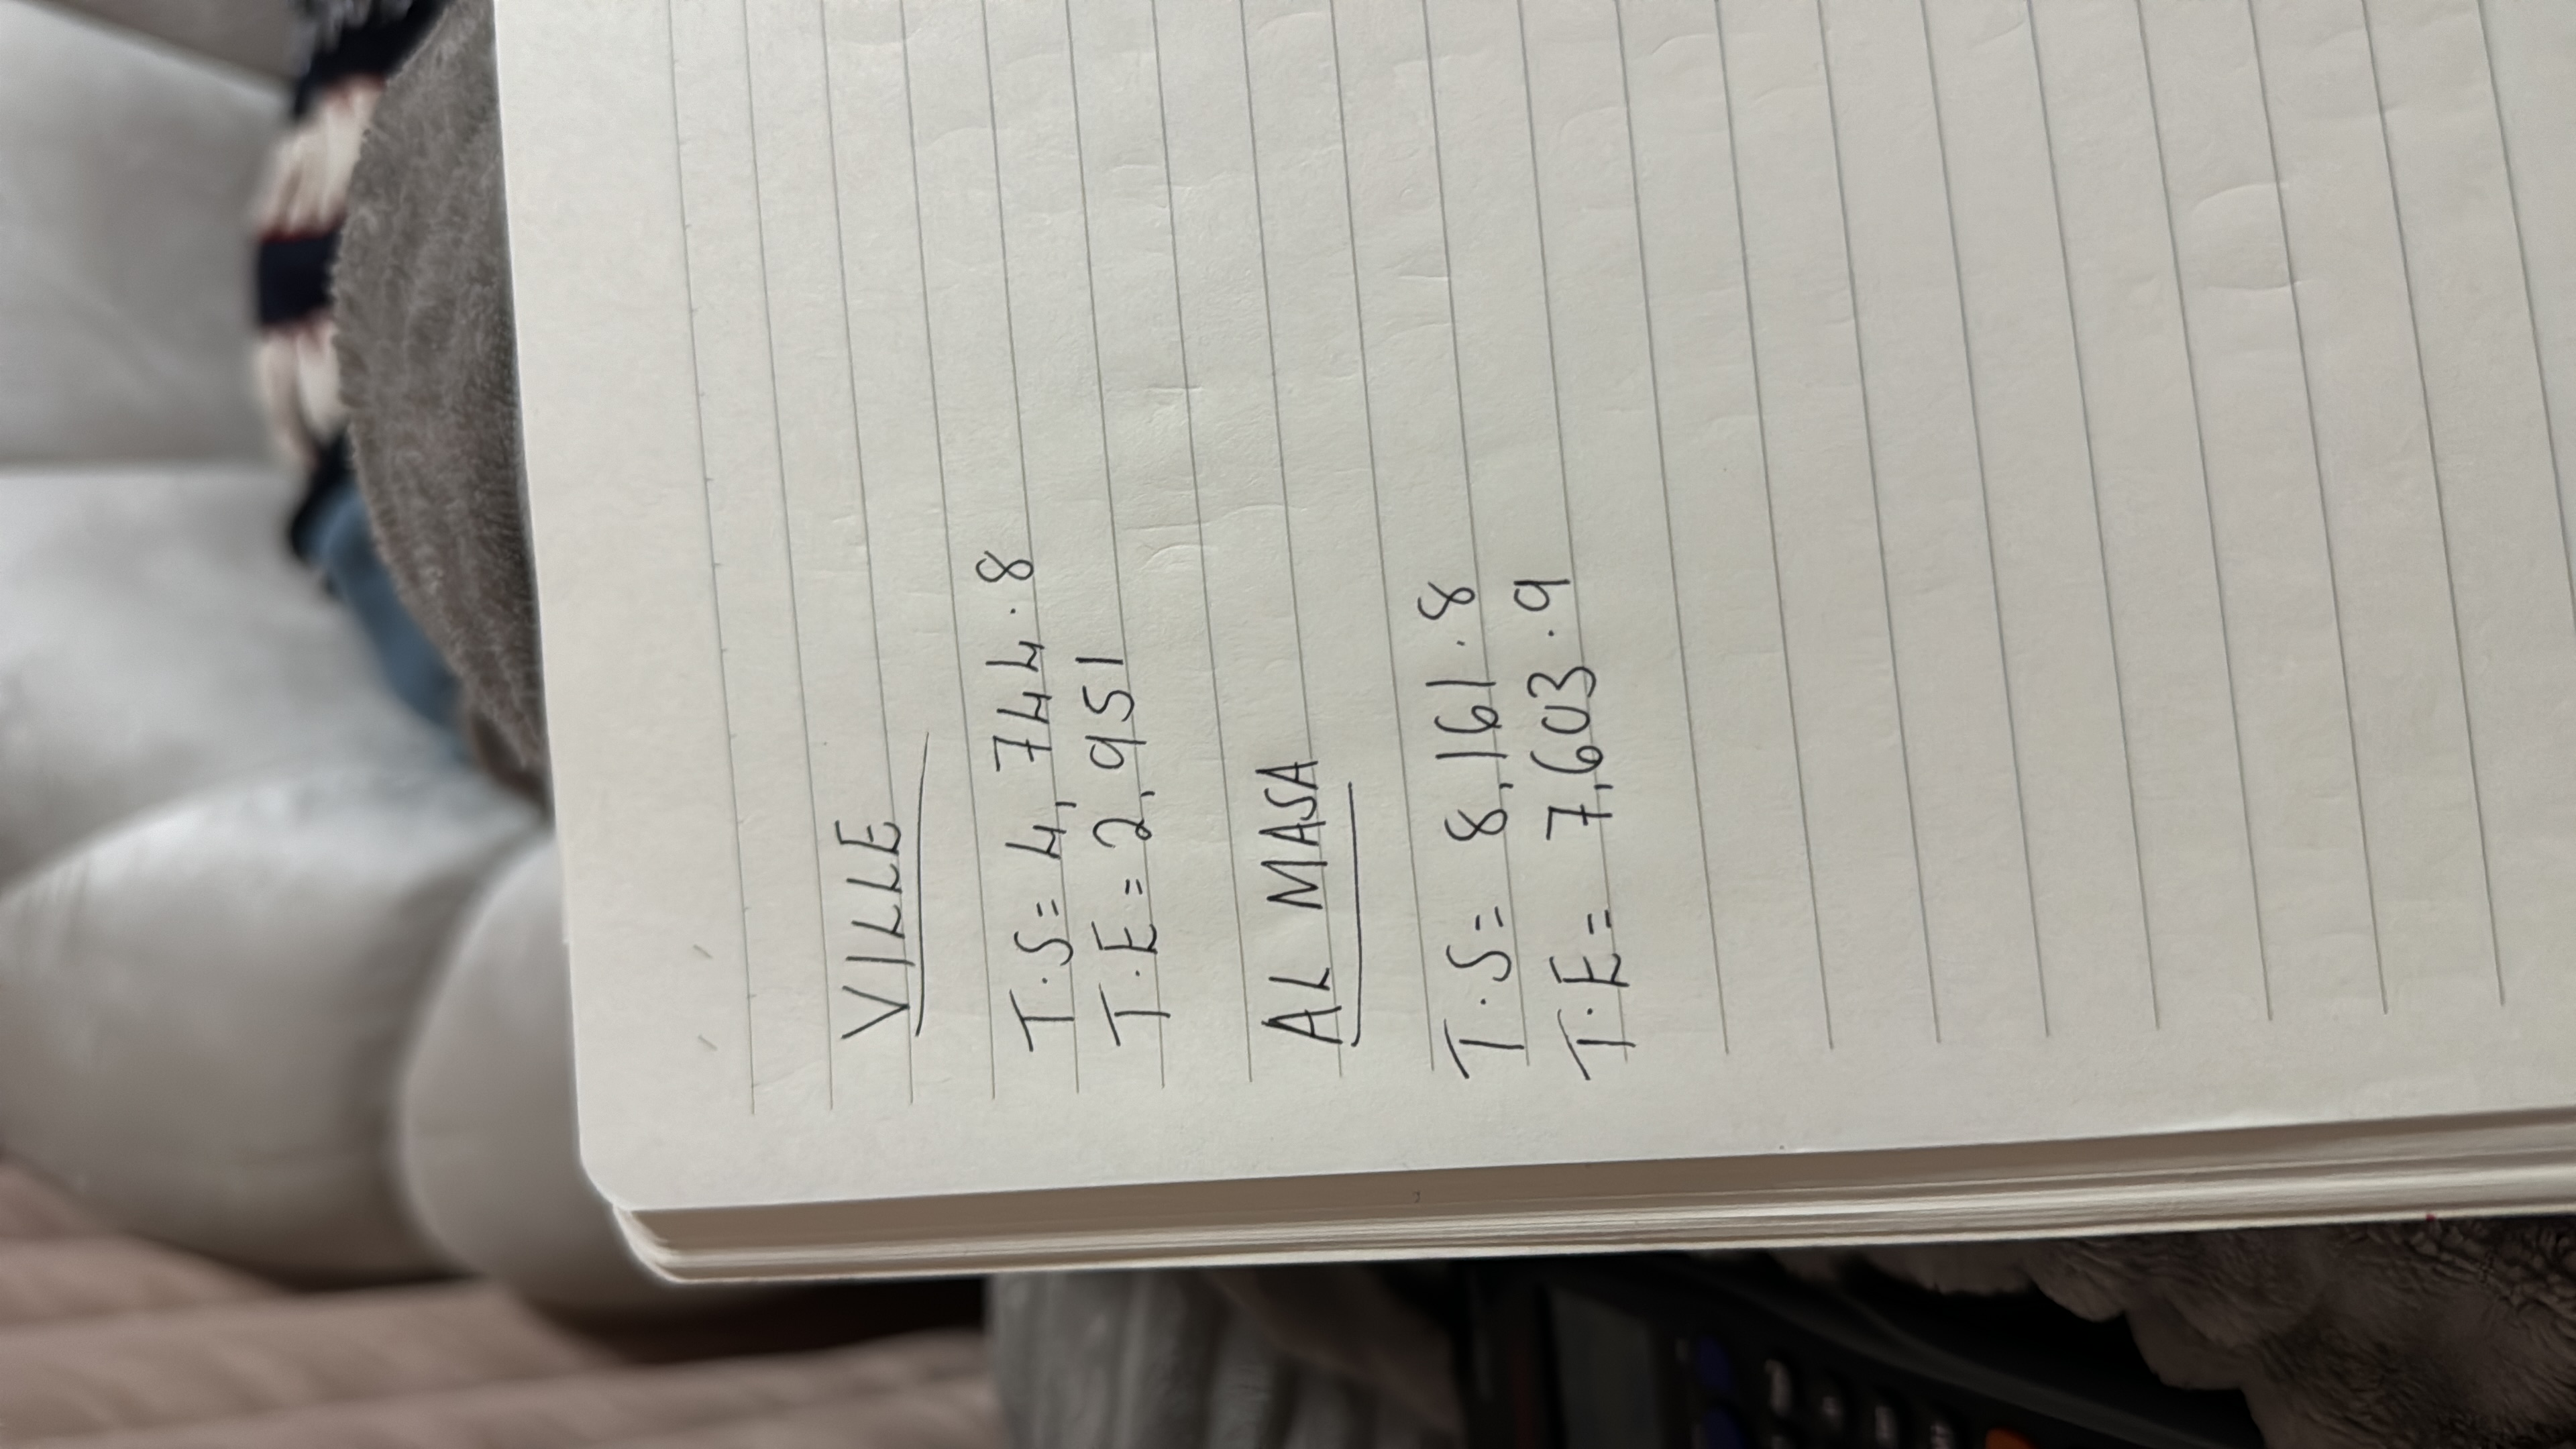 VILLE
T.S = 4,744.8
T.E = 2,951
AL MASA
T.S = 8,161.8
T.E = 7,603.9